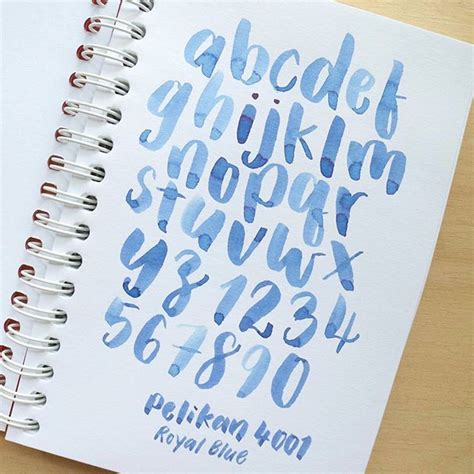 abcdef
ghijklm
nopqr
stuvwx
yz1234
567890
Pelikan 4001
Royal Blue